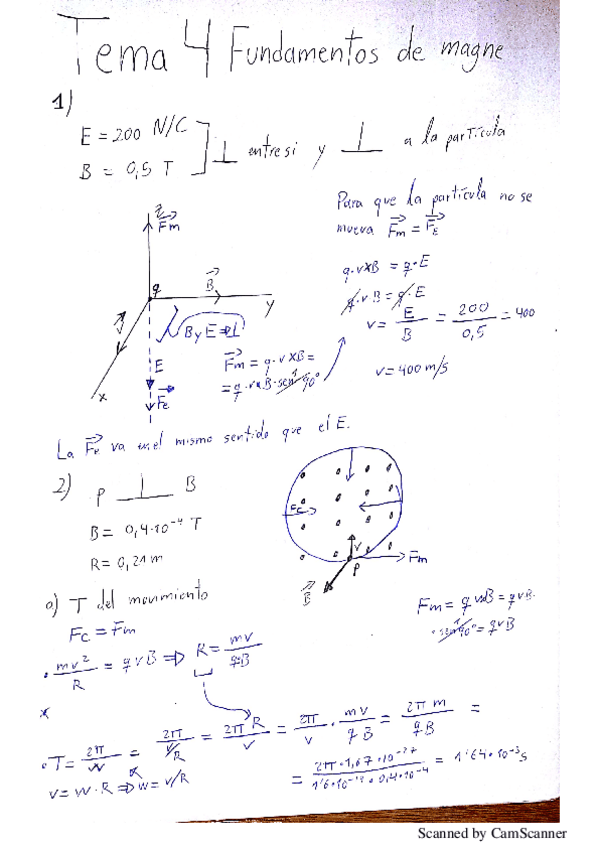 Tema 4 Fundamentos de magne
1)
E = 200 N/C
B = 0,5 T
⊥ entre si y ⊥ a la partícula
Para que la partícula no se
mueva Fm = FE
q·v×B = q·E
q·v·B = q·E
v = E/B = 200/0,5 = 400
v = 400 m/s
z
Fm
q
B
y
v
x
B y E ⊥
E
Fe
Fm = q·v×B =
= q·v·B·sen 90°
La Fe va en el mismo sentido que el E.
2)
P ⊥ B
B = 0,4·10⁻⁴ T
R = 0,21 m
Fc
v
Fm
P
B
a) T del movimiento
Fc = Fm
Fm = q v×B = q v B·
·sen 90° = q v B
· mv²/R = q v B ⇒ R = mv/(q·B)
· T = 2π/w = 2π/(v/R) = 2πR/v = 2π/v · mv/(qB) = 2πm/(qB) =
v = w·R ⇒ w = v/R
= 2π·1,67·10⁻²⁷/(1'6·10⁻¹⁹·0,4·10⁻⁴) = 1'64·10⁻³ s
Scanned by CamScanner